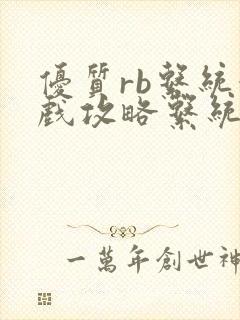 優質rb繫統
戲攻略繫統
一萬年創世神